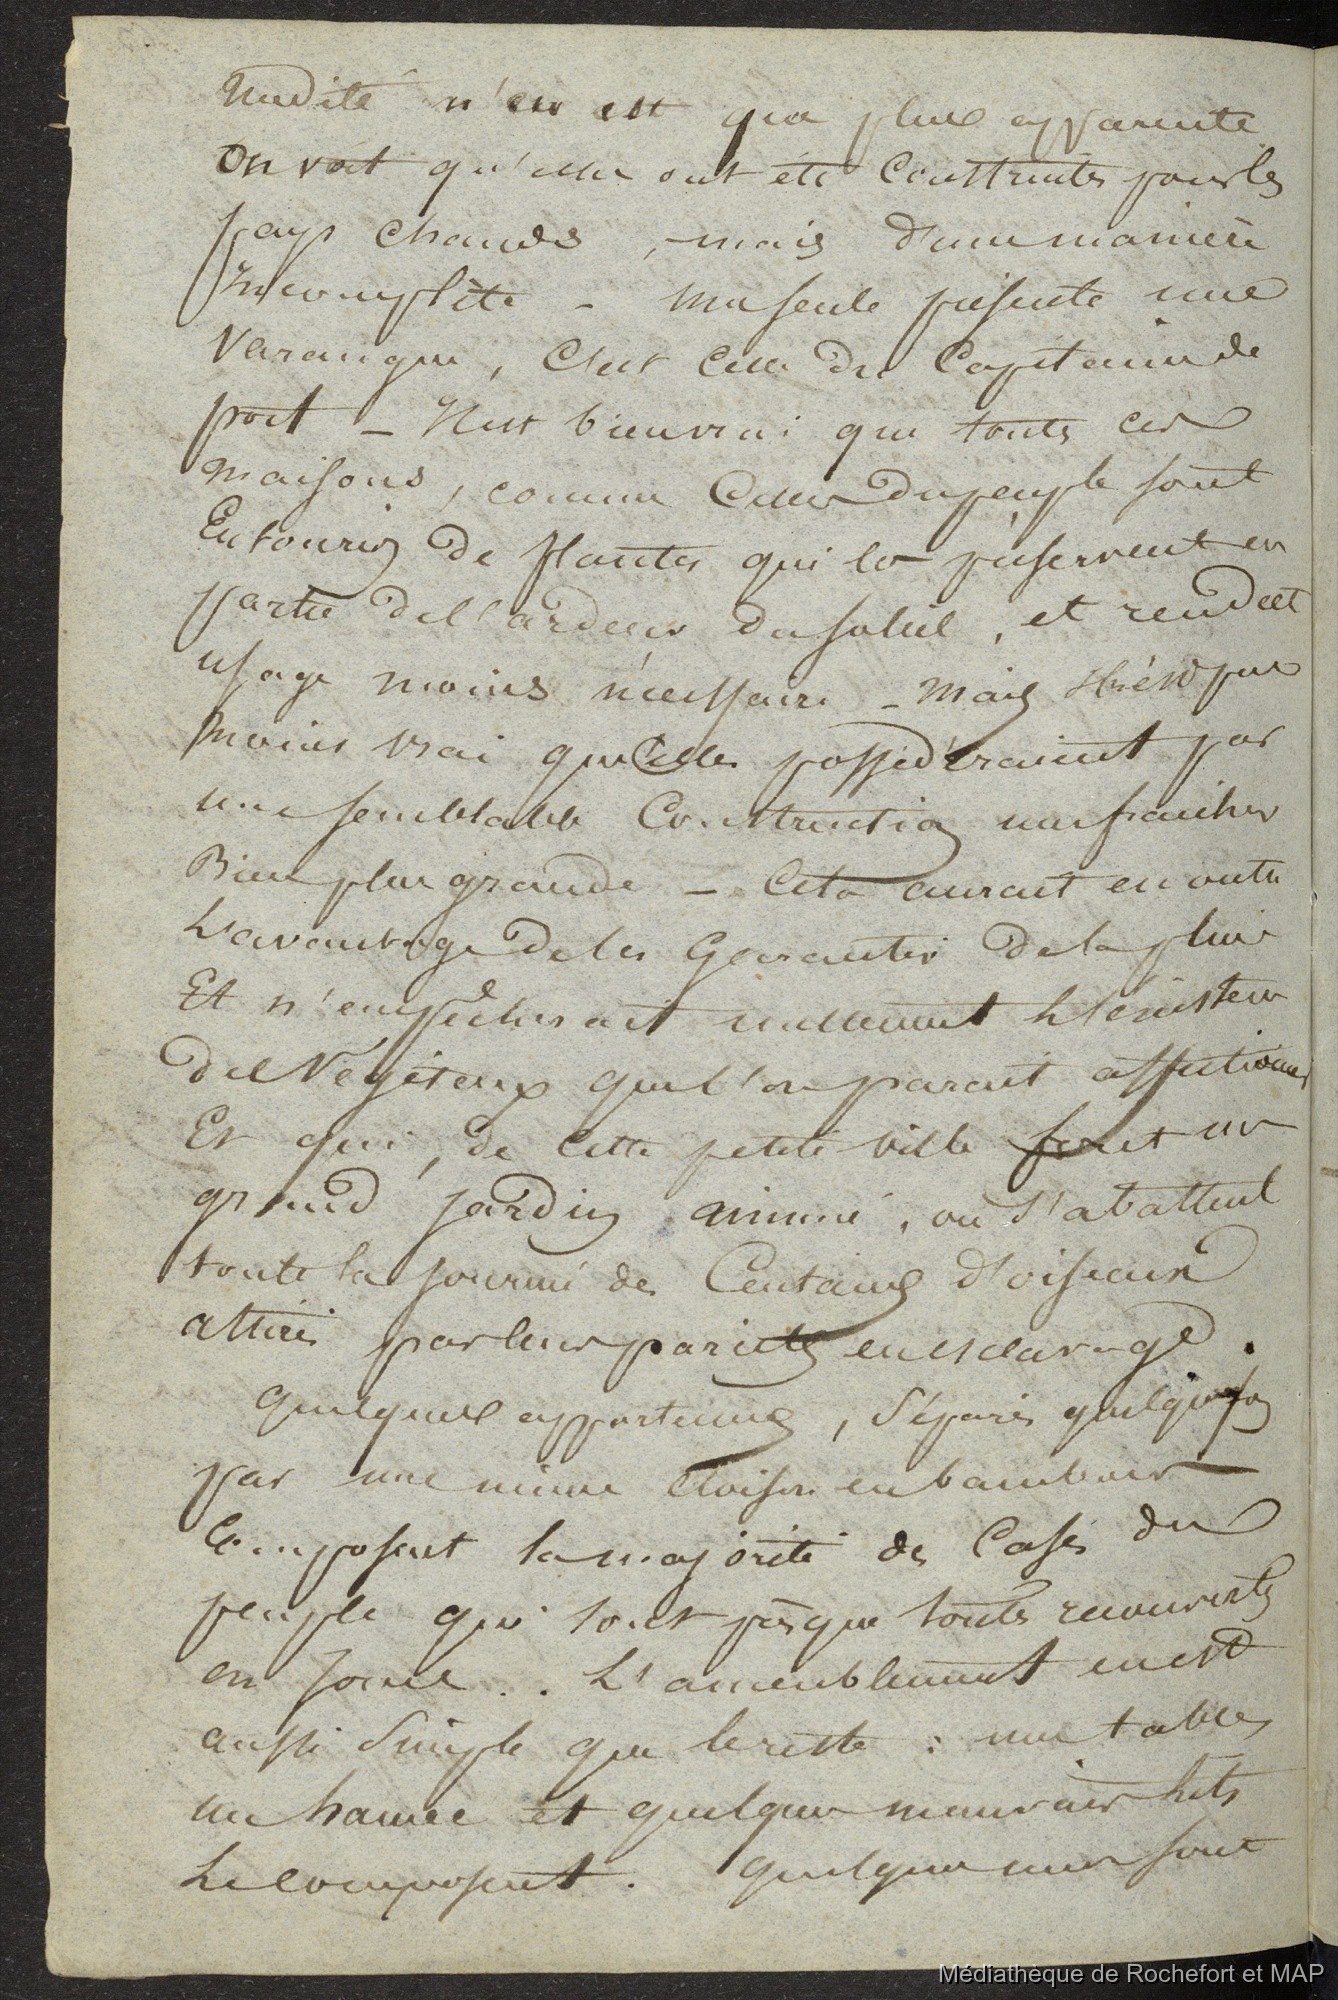 nudité n'en est que plus apparente
On voit qu'elles ont été construites pour les
pays chauds, mais d'une manière
incomplète - une seule présente une
Varangue, C'est celle du Capitaine de
port - Il est bien vrai que toutes ces
maisons, comme celles du peuple sont
Entourées de plantes qui les préservent en
partie de l'ardeur du soleil, et rend cet
usage moins nécessaire - mais il n'est pas
moins vrai qu'elles possèderaient par
une semblable Construction une fraicheur
Bien plus grande - Cela aurait en outre
L'avantage de les garantir de la pluie
Et n'empêcherait nullement L'existence
des Végétaux que l'on parait affectionner
Et qui, de cette petite ville font un
grand jardin animé, où s'abattent
toute la journée des Centaines d'oiseaux
attirés par leurs parents en esclavage.
quelques appartemens, séparés quelquefois
par une mince cloison en bambous
Composent la majorité des Cases du
peuple qui sont presque toutes recouvertes
en jonc.. L'ameublement en est
aussi simple que le reste : une table
un hamac et quelques mauvais lits
Le composent. quelques unes sont
Médiathèque de Rochefort et MAP